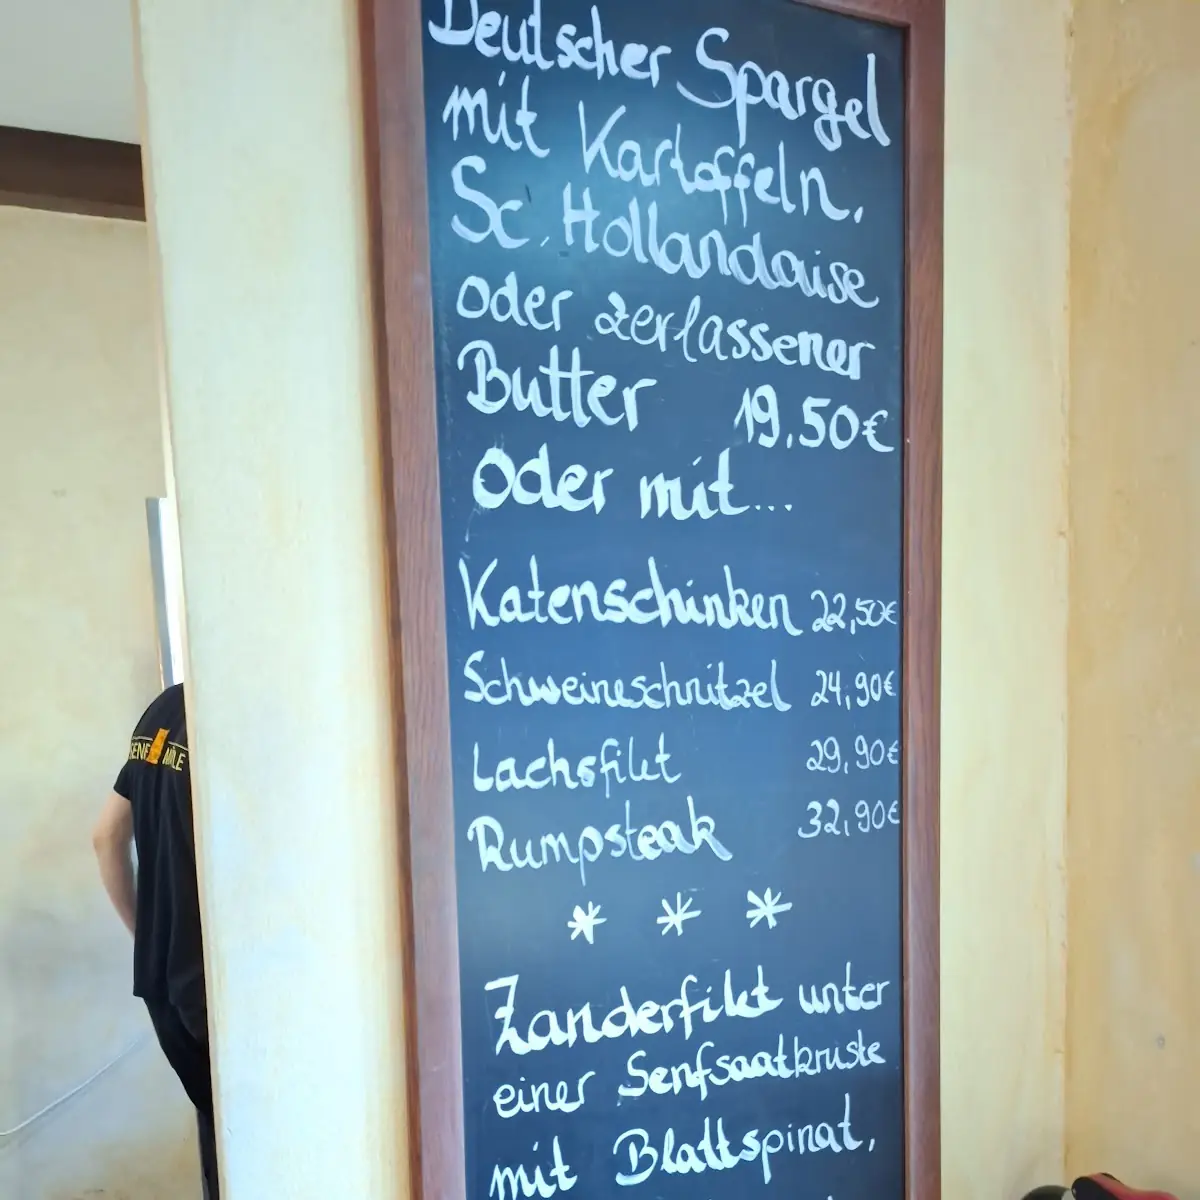 Deutscher Spargel
mit Kartoffeln,
Sc. Hollandaise
oder zerlassener
Butter 19,50€
oder mit...
Katenschinken 22,50€
Schweineschnitzel 24,90€
Lachsfilet 29,90€
Rumpsteak 32,90€
* * *
Zanderfilet unter
einer Senfsaatkruste
mit Blattspinat,
SENF MÜHLE